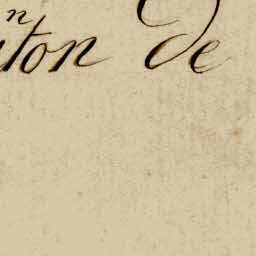 n
ton De